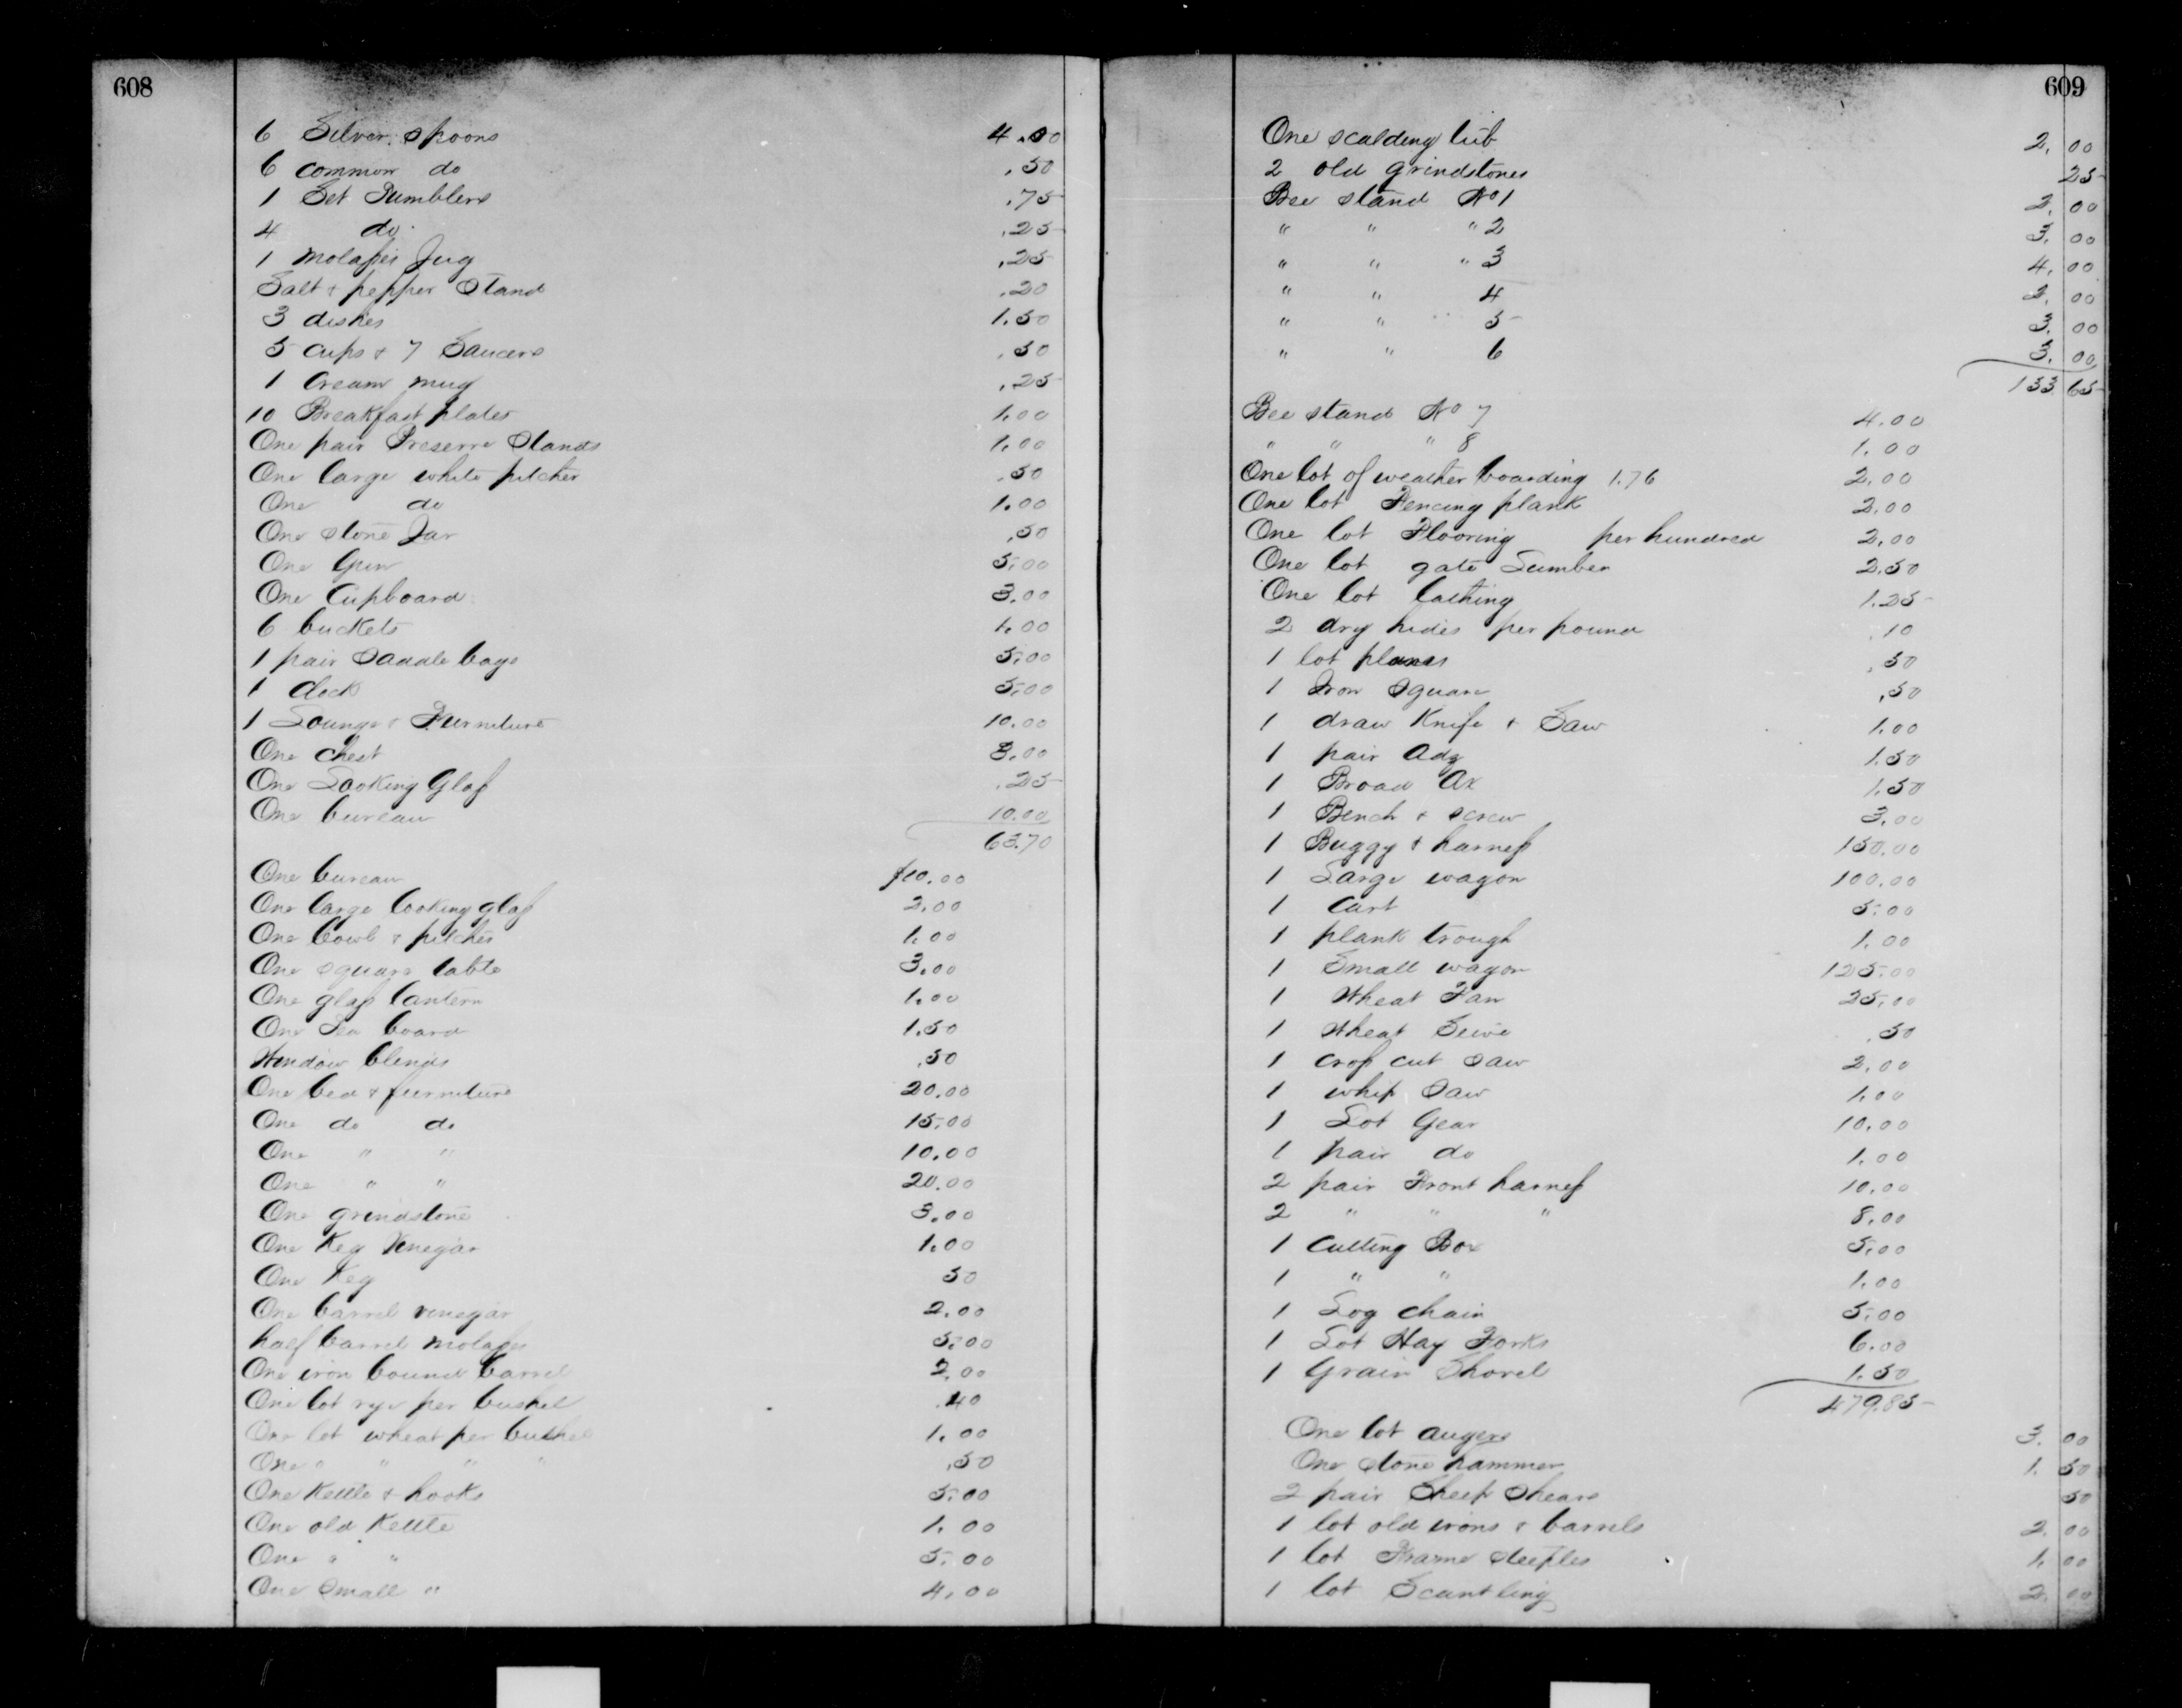 608
6 Silver spoons 4.00
6 common do .50
1 Set Tumblers .75
4 do. .25
1 Molasses Jug .25
Salt & pepper Stand .20
3 dishes 1.50
5 cups & 7 Saucers .50
1 Cream mug .25
10 Breakfast plates 1.00
One pair Preserve Stands 1.00
One large white pitcher .50
One do 1.00
One stone Jar .50
One Gun 5.00
One Cupboard 3.00
6 buckets 1.00
1 pair Saddle bags 5.00
1 clock 5.00
1 Lounge & Furniture 10.00
One chest 3.00
One Looking Glass .25
One bureau 10.00
63.70
One bureau $10.00
One large looking glass 2.00
One bowl & pitcher 1.00
One square table 3.00
One glass lantern 1.00
One Tea board 1.50
Window blinds .50
One bed & furniture 20.00
One do do 15.00
One " " 10.00
One " " 20.00
One grindstone 3.00
One Keg Vinegar 1.00
One Keg 50
One barrel vinegar 2.00
half barrel molasses 5.00
One iron bound barrel 2.00
One lot rye per bushel .40
One lot wheat per bushel 1.00
One " " " " .50
One Kettle & hooks 5.00
One old Kettle 1.00
One " " 5.00
One Small " 4.00
609
One scalding tub 2.00
2 old grindstones 25
Bee stand No 1 2.00
" " " 2 3.00
" " " 3 4.00
" " 4 2.00
" " 5 3.00
" " 6 3.00
133 65
Bee stand No 7 4.00
" " " 8 1.00
One lot of weather boarding 1.76 2.00
One lot Fencing plank 2.00
One lot Flooring per hundred 2.00
One lot gate Lumber 2.50
One lot lathing 1.25
2 dry hides per pound .10
1 lot planes .50
1 Iron Square .50
1 draw Knife & Saw 1.00
1 pair Adz 1.50
1 Broad Ax 1.50
1 Bench & screw 3.00
1 Buggy & harness 150.00
1 Large wagon 100.00
1 Cart 5.00
1 plank trough 1.00
1 Small wagon 125.00
1 Wheat Fan 25.00
1 Wheat Seive .50
1 cross cut saw 2.00
1 whip Saw 1.00
1 Lot Gear 10.00
1 pair do 1.00
2 pair Front harness 10.00
2 " " " 8.00
1 Cutting Box 5.00
1 " " 1.00
1 Log chain 5.00
1 Lot Hay Forks 6.00
1 Grain Shovel 1.50
479.85
One lot augers 3.00
One stone hammer 1.50
2 pair Sheep Shears 50
1 lot old irons & barrels 2.00
1 lot Frame steeples 1.00
1 lot Scantling 2.00